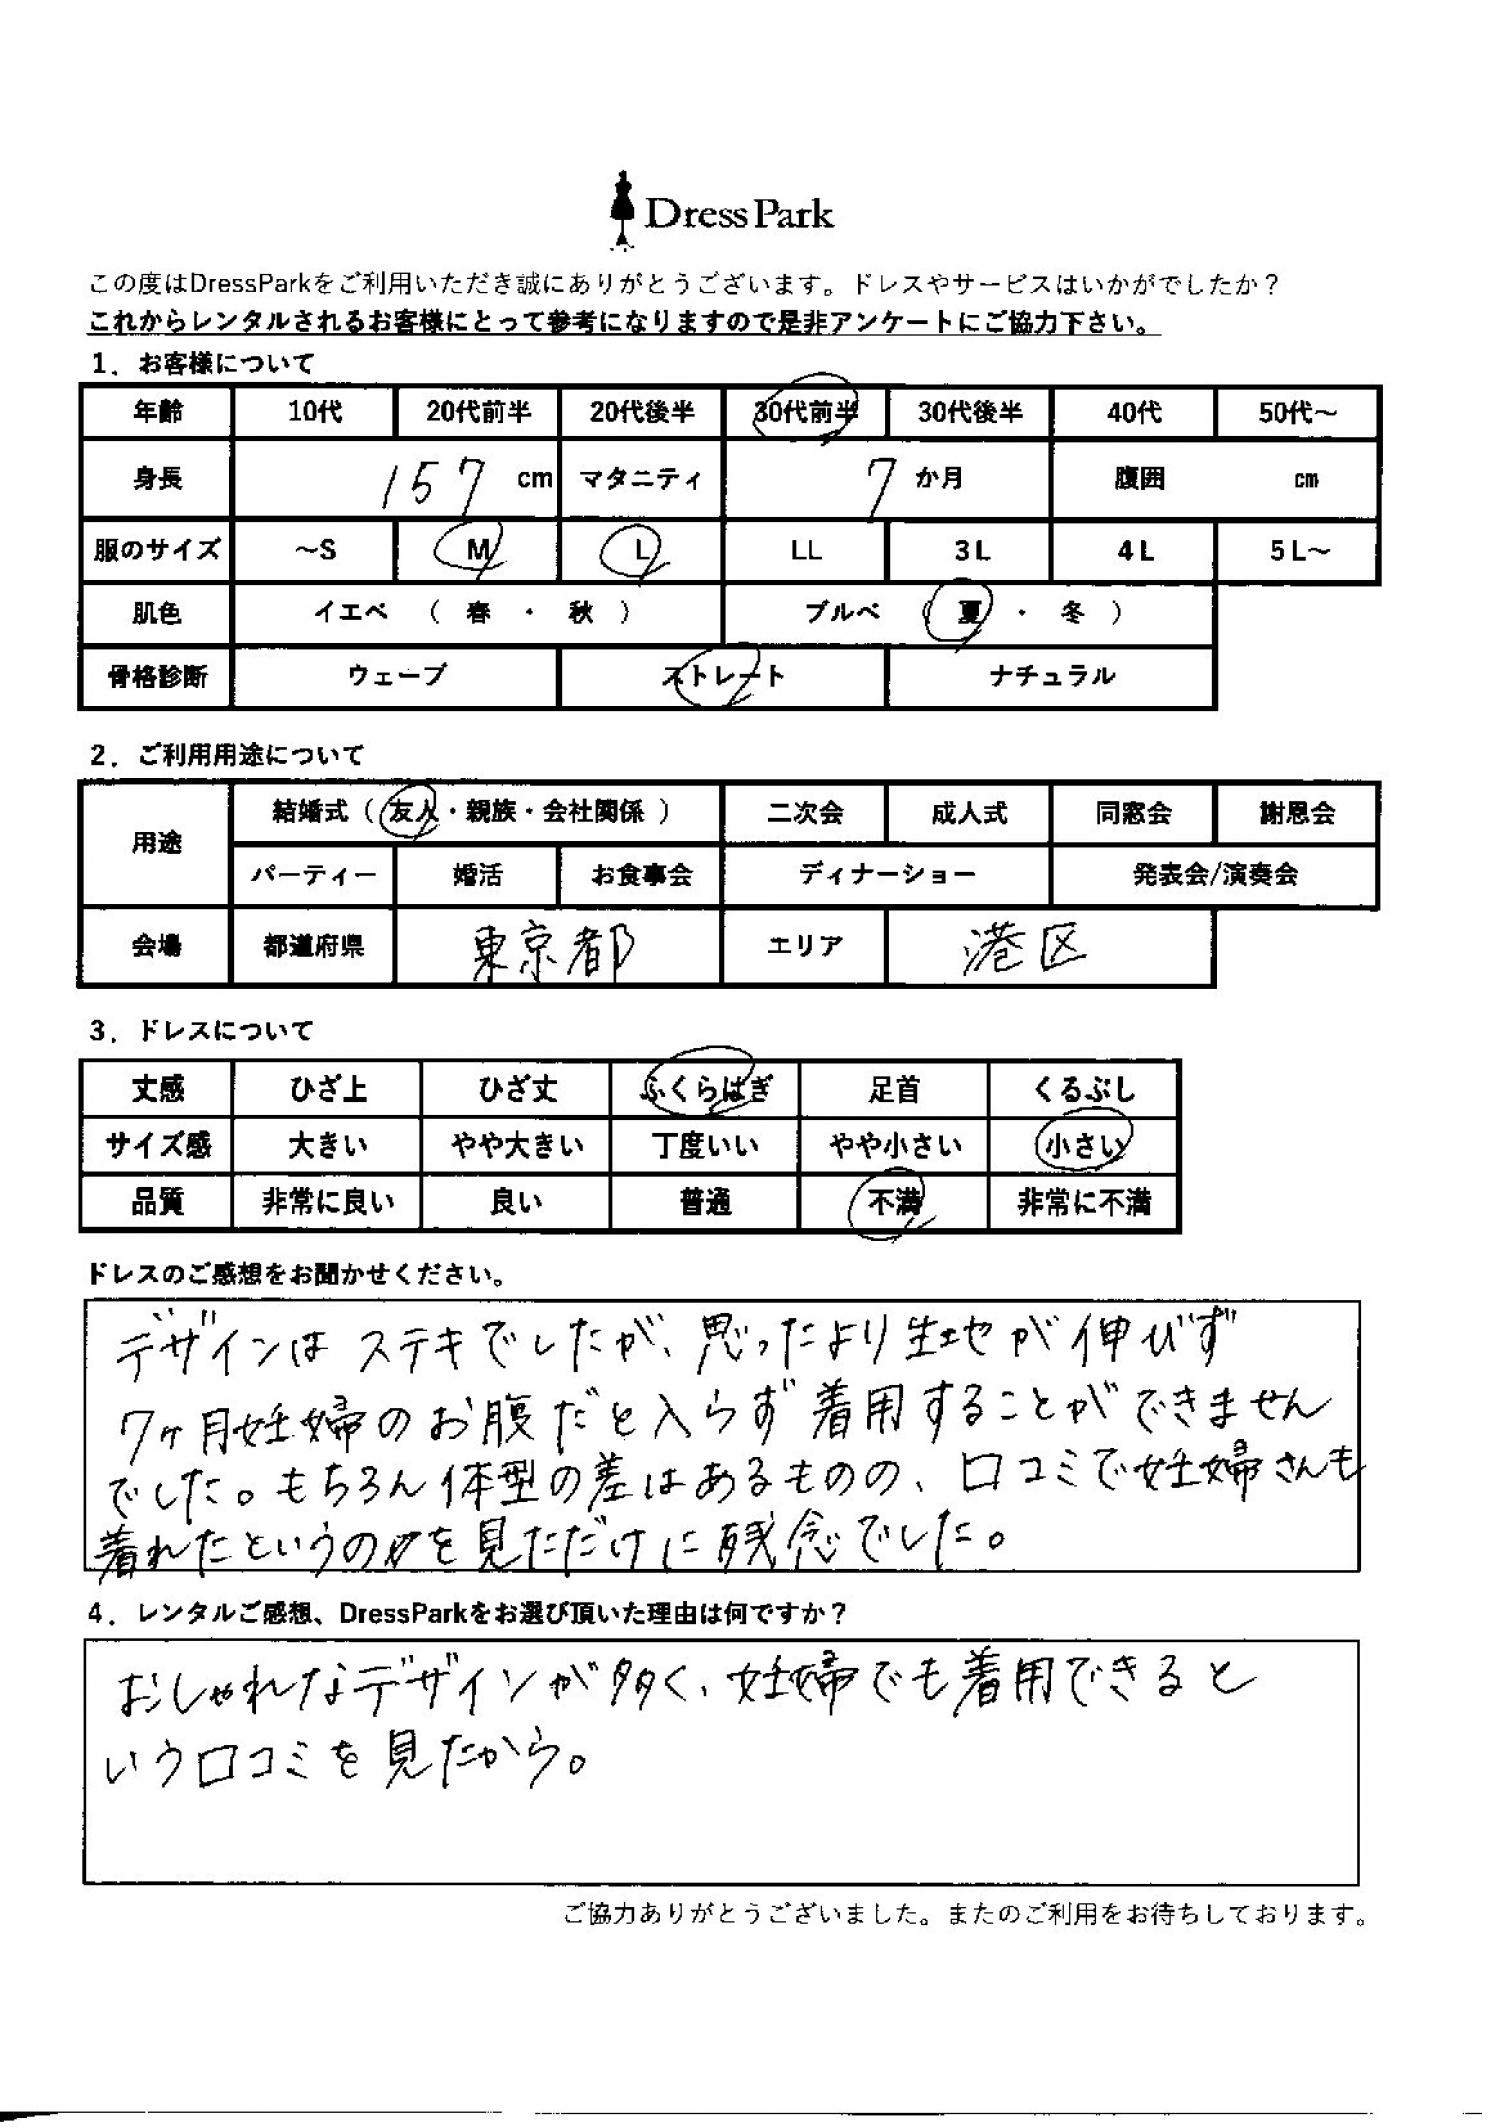 DressPark
この度はDressParkをご利用いただき誠にありがとうございます。ドレスやサービスはいかがでしたか？
これからレンタルされるお客様にとって参考になりますので是非アンケートにご協力下さい。
1．お客様について
年齢 10代 20代前半 20代後半 30代前半 30代後半 40代 50代～
身長 157 cm マタニティ 7 か月 腹囲 cm
服のサイズ ～S M L LL 3L 4L 5L～
肌色 イエベ （ 春 ・ 秋 ） ブルベ （ 夏 ・ 冬 ）
骨格診断 ウェーブ ストレート ナチュラル
2．ご利用用途について
用途 結婚式（ 友人・親族・会社関係 ） 二次会 成人式 同窓会 謝恩会
パーティー 婚活 お食事会 ディナーショー 発表会/演奏会
会場 都道府県 東京都 エリア 港区
3．ドレスについて
丈感 ひざ上 ひざ丈 ふくらはぎ 足首 くるぶし
サイズ感 大きい やや大きい 丁度いい やや小さい 小さい
品質 非常に良い 良い 普通 不満 非常に不満
ドレスのご感想をお聞かせください。
デザインはステキでしたが、思ったより生地が伸びず
7ヶ月妊婦のお腹だと入らず着用することができません
でした。もちろん体型の差はあるものの、口コミで妊婦さんも
着れたというのを見ただけに残念でした。
4．レンタルご感想、DressParkをお選び頂いた理由は何ですか？
おしゃれなデザインが多く、妊婦でも着用できると
いう口コミを見たから。
ご協力ありがとうございました。またのご利用をお待ちしております。